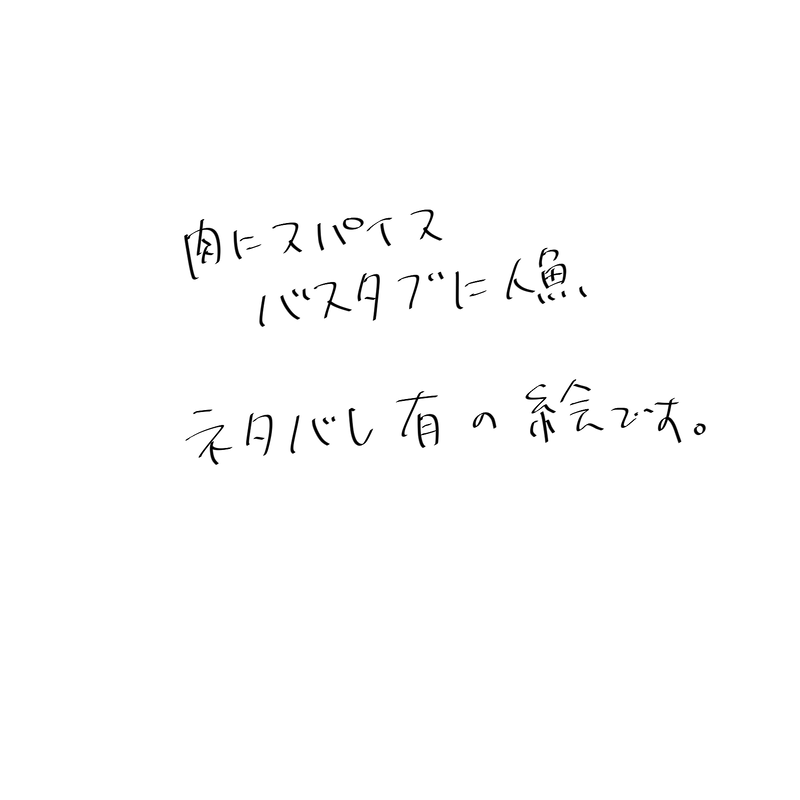 肉にスパイス
バスタブに人魚
ネタバレ有の絵です。